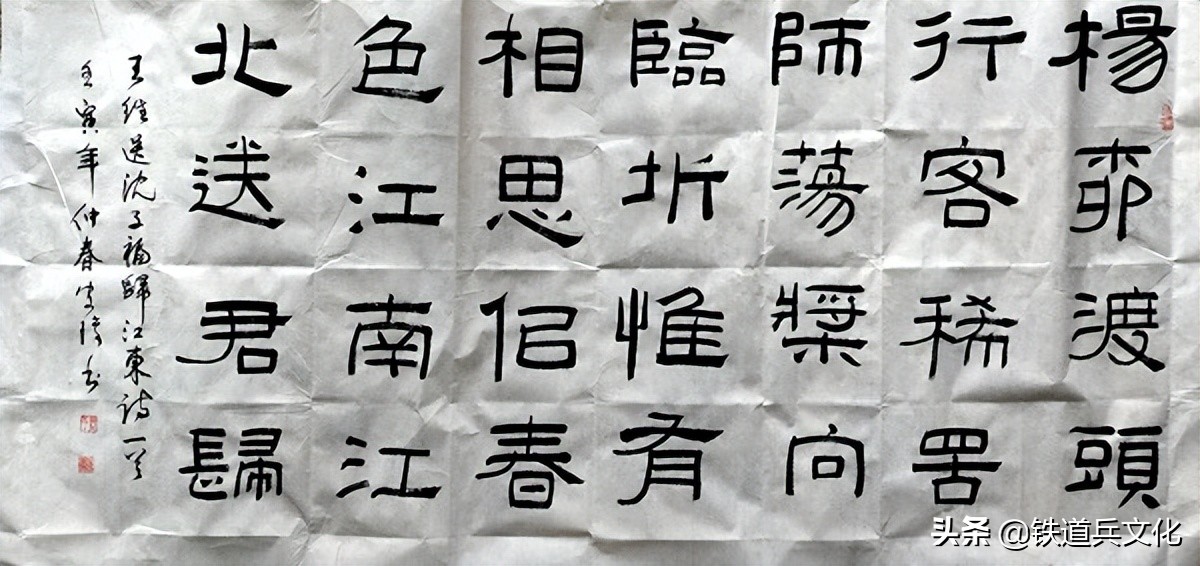 楊桺渡頭
行客稀罟
師蕩槳向
臨圻惟有
相思佀春
色江南江
北送君歸
王維送沈子福歸江東詩一首
壬寅年仲春
头条 @铁道兵文化